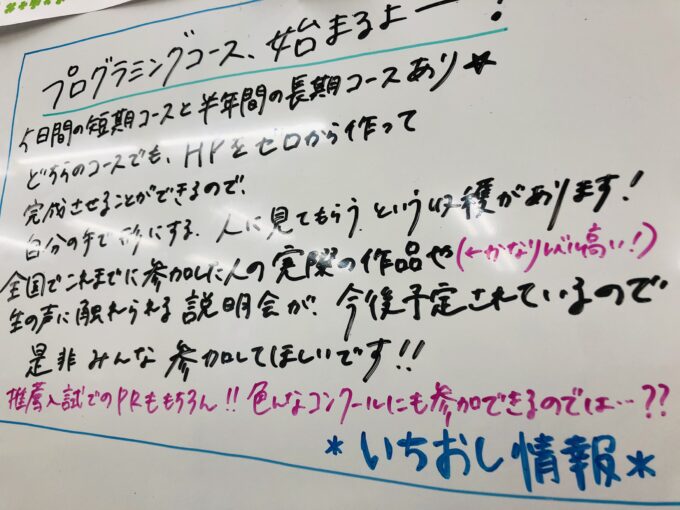 プログラミングコース、始まるよー!
5日間の短期コースと半年間の長期コースあり★
どちらのコースでも、HPをゼロから作って
完成させることができるので、
自分の手で形にする、人に見てもらう という収穫があります!
全国でこれまでに参加した人の実際の作品や(←かなりレベル高い!)
生の声に触れられる説明会が、今後予定されているので
是非みんな参加してほしいです!!
推薦入試でのPRももちろん!!色んなコンクールにも参加できるのでは…??
*いちおし情報*